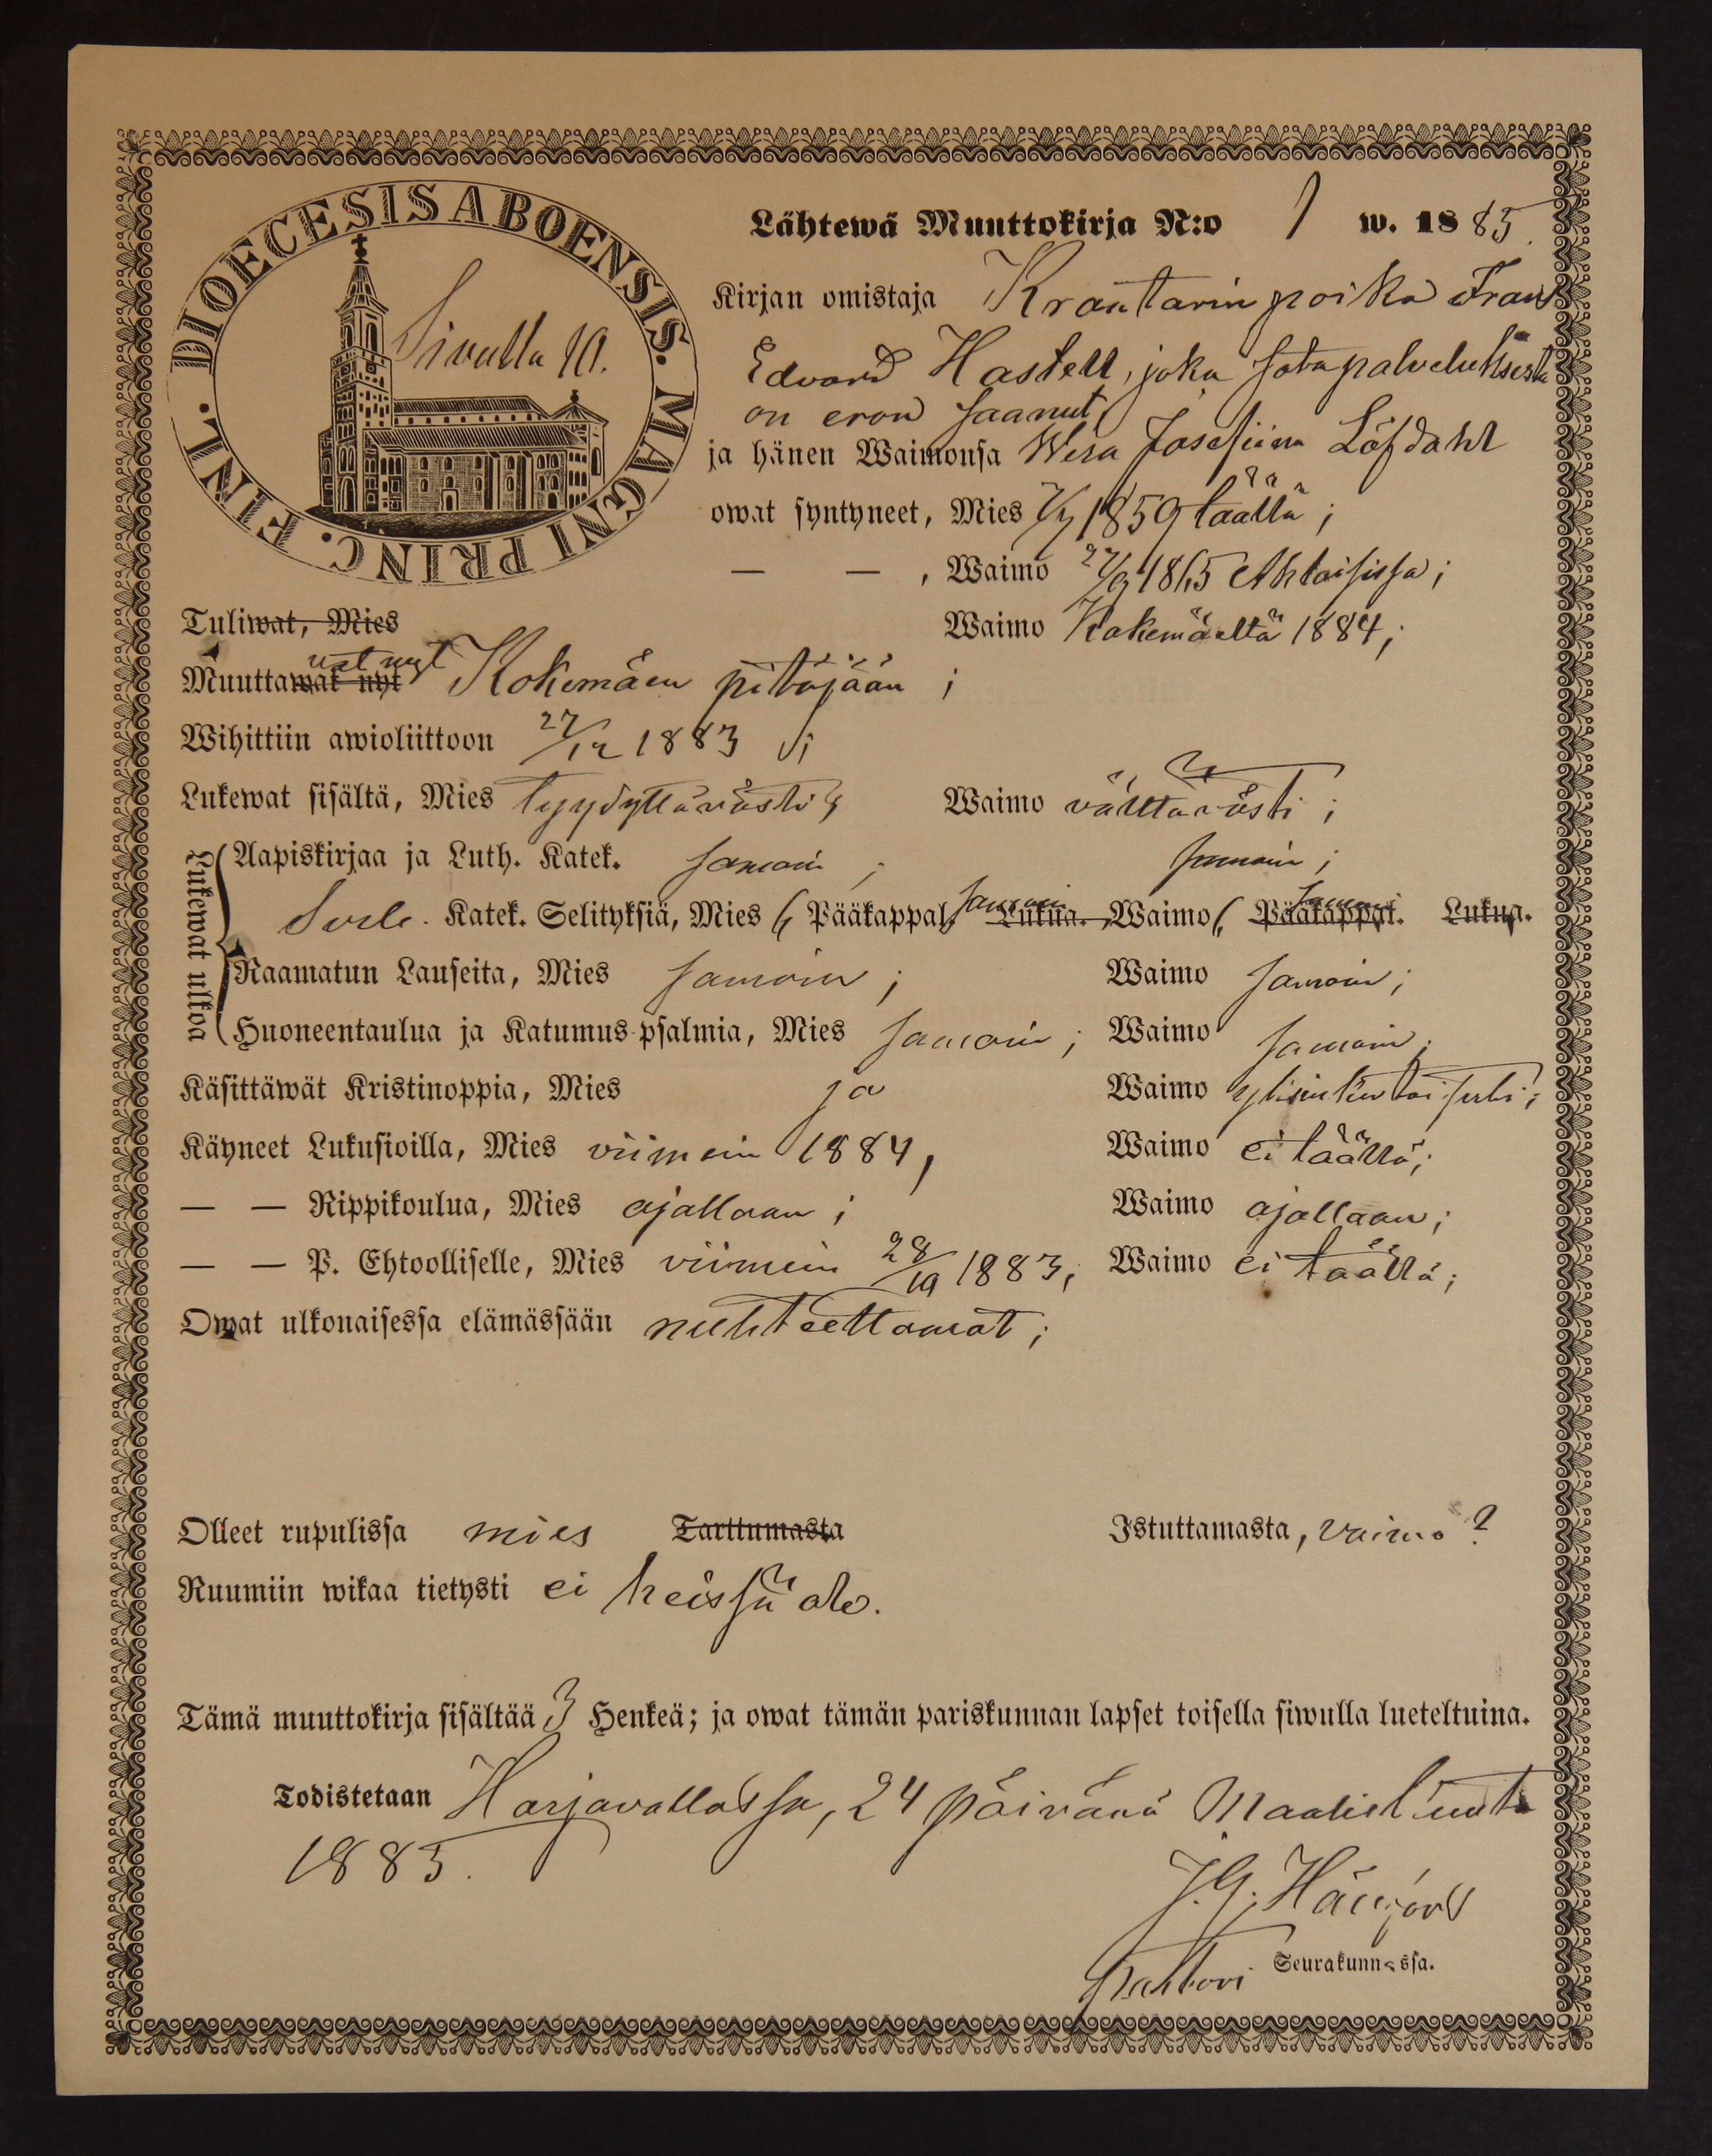 FINL. DIOECESIS ABOENSIS. MAGNI PRINC.
Sivulla 10.
Lähtewä Muuttokirja N:o 1 w. 1885.
Kirjan omistaja Kraatarin poika Frans
Edvard Hastell, joka sotapalveluksesta
on eron saanut,
ja hänen Waimonsa Wera Josefiina Löfdahl
owat syntyneet, Mies 1859 täällä;
— — , Waimo 27/9 1865 Ahlaisissa;
Tuliwat, Mies Waimo Kokemäeltä 1884;
Muuttawat nyt vat nyt Kokemäen pitäjään;
Wihittiin awioliittoon 27/12 1883;
Lukewat sisältä, Mies tyydyttävästi; Waimo välttävästi;
Lukewat ulkoa
Aapiskirjaa ja Luth. Katek. samoin; samoin;
Katek. Selityksiä, Mies Pääkappal. samoin Lukua. Waimo Pääkappal. samoin Lukua.
Raamatun Lauseita, Mies samoin; Waimo samoin;
Huoneentaulua ja Katumus-psalmia, Mies samoin; Waimo samoin;
Käsittäwät Kristinoppia, Mies ja Waimo yksinkertaisesti;
Käyneet Lukusioilla, Mies viimein 1884, Waimo ei täällä;
— — Rippikoulua, Mies ajallaan; Waimo ajallaan;
— — P. Ehtoolliselle, Mies viimein 28/10 1883; Waimo ei täällä;
Owat ulkonaisessa elämässään nuhteettomat;
Olleet rupulissa mies Tarttumasta Istuttamasta, vaimo?
Ruumiin wikaa tietysti ei heissä ole.
Tämä muuttokirja sisältää 3 Henkeä; ja owat tämän pariskunnan lapset toisella siwulla lueteltuina.
Todistetaan Harjavallassa, 24 päivänä Maaliskuuta
1885.
J. G.
Seurakunnassa.